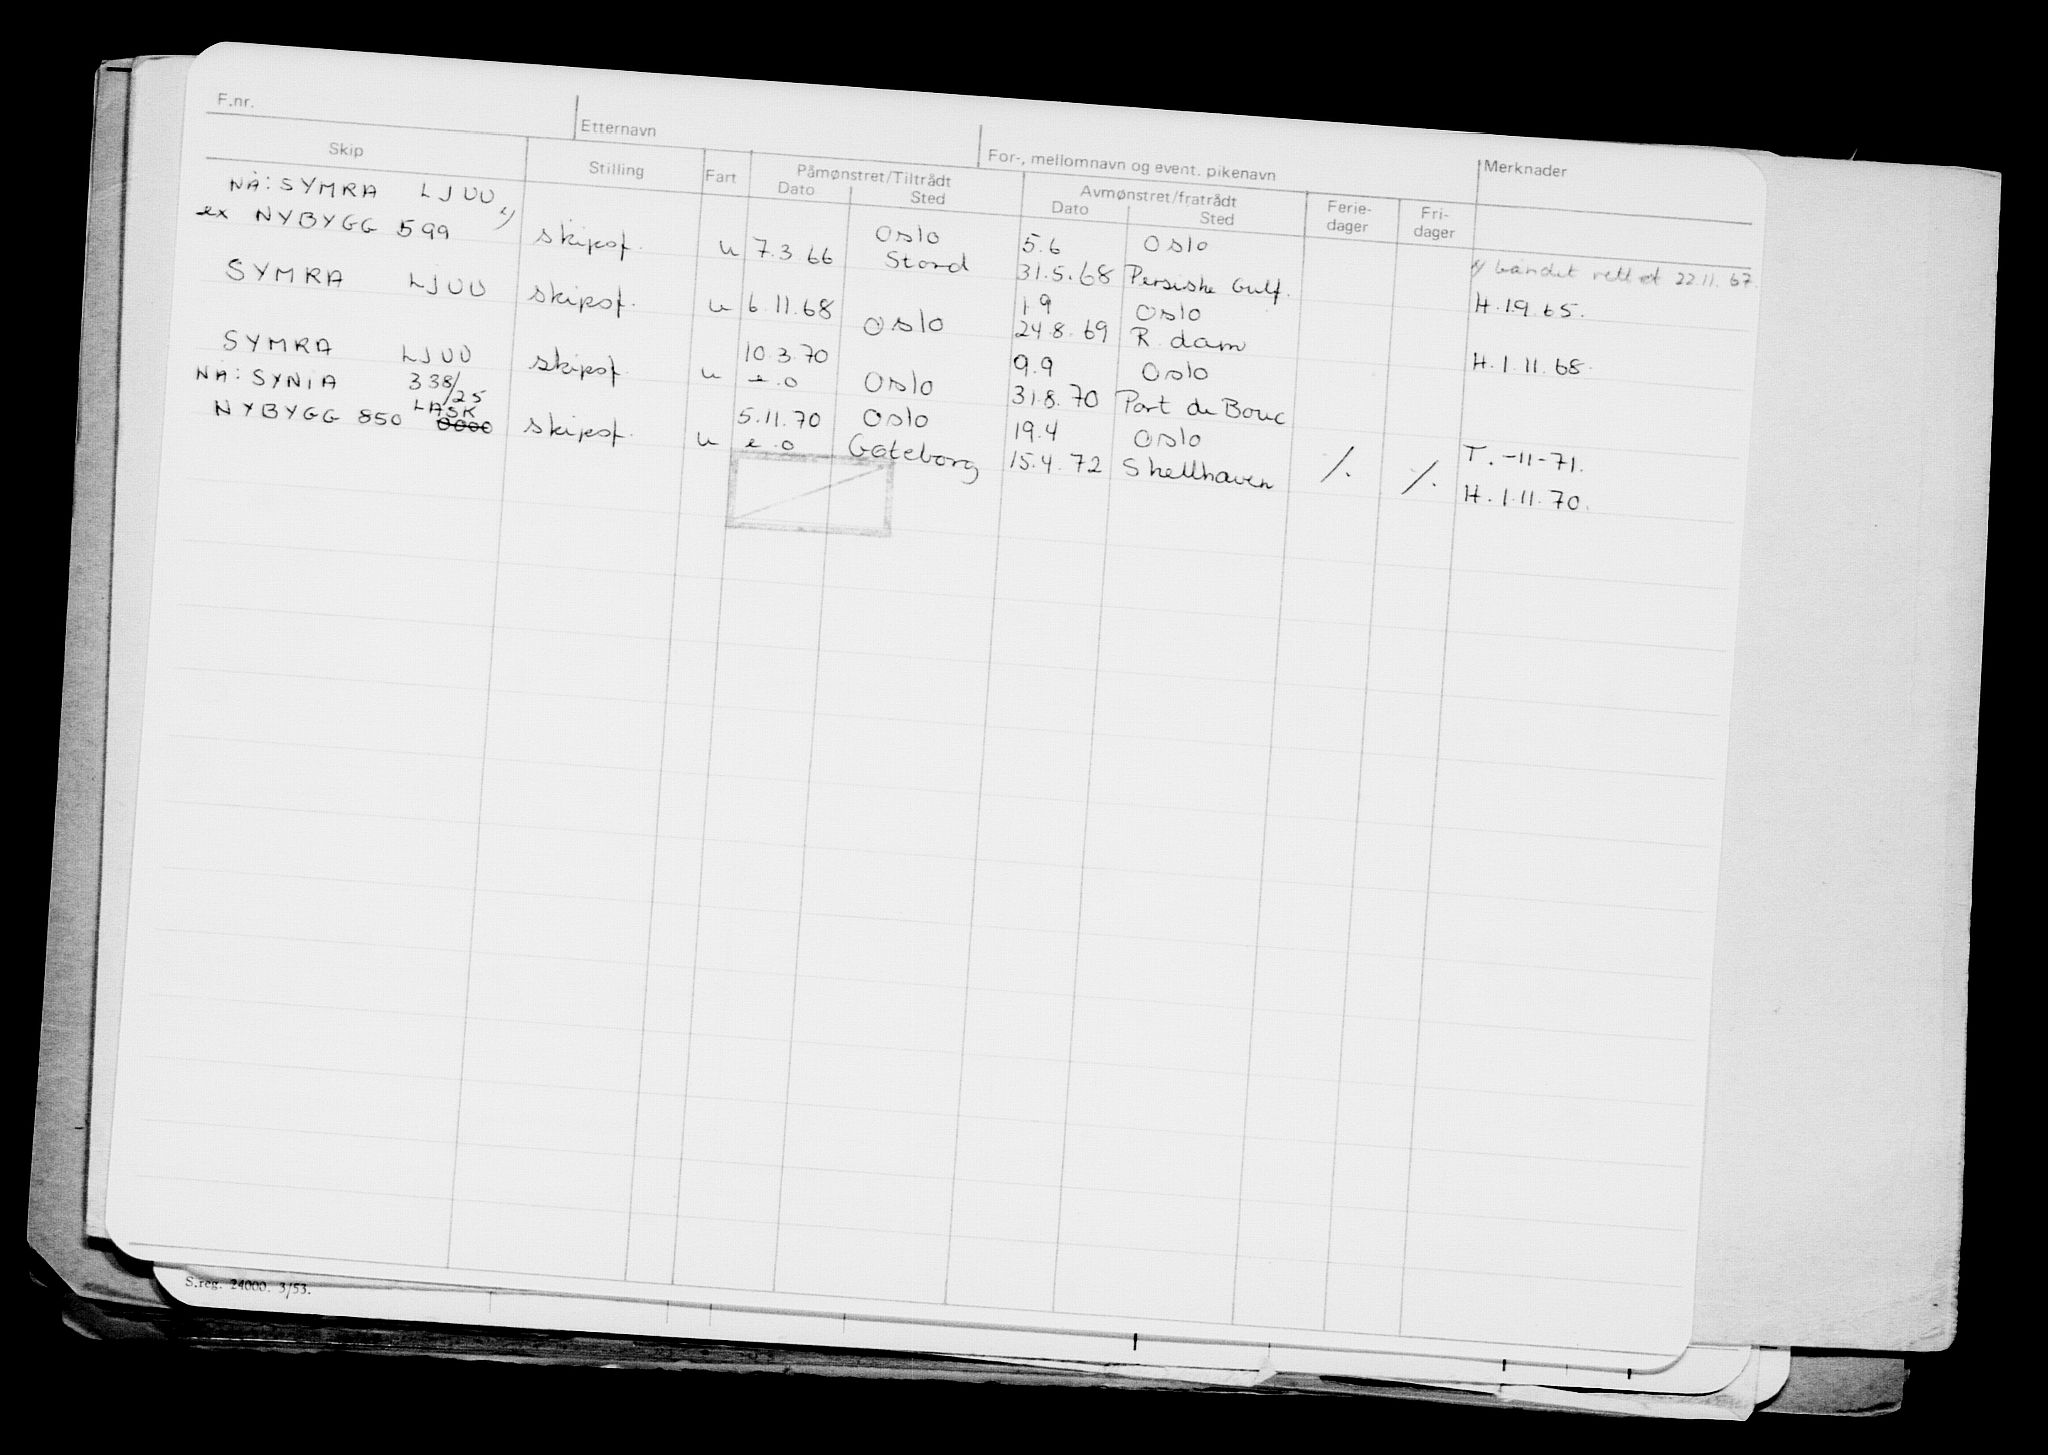 F.nr. Etternavn For-, mellomnavn og event. pikenavn Merknader
Skip Stilling Fart Påmønstret/Tiltrådt Avmønstret/fratrådt Ferie- Fri-
Dato Sted Dato Sted dager dager
NÅ: SYMRA LJUU 1) Oslo 5.6 Oslo
ex NYBYGG 599 skipsf. u 7.3 66 Stord 31.5.68 Persiske Gulf. 1) båndet rettet 22.11.67.
SYMRA LJUU skipsf. u 6.11.68 Oslo 1.9 Oslo H.1.9.65.
24.8.69 R.dam
SYMRA LJUU skipsf. u 10.3.70 9.9 Oslo H.1.11.68.
e.o Oslo 31.8.70 Port de Bouc
NÅ: SYNIA 338/25 5.11.70 Oslo 19.4 Oslo T.-11-71.
NYBYGG 850 LASK 0000 skipsf. u e.o Gøteborg 15.4.72 Shellhaven /. /. H.1.11.70.
S.reg. 24000. 3/53.